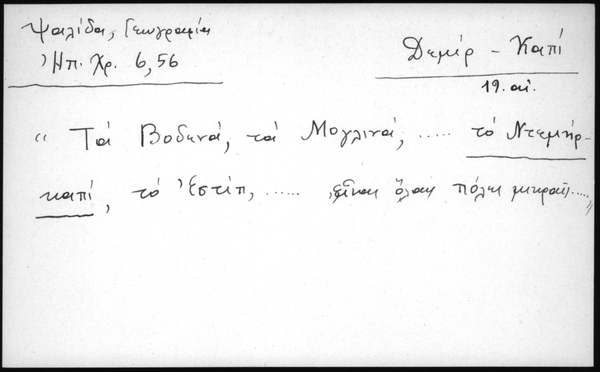 Ψαλίδα, Γεωγραφία
Ἠπ. Χρ. 6,56
Δεμίρ - Καπί
19. αἰ.
“ Τά Βοδενά, τά Μογλινά, ..... τό Ντεμήρ-
καπί, τό Ἐστίπ, ...... εἶναι ὅλαι πόλεις μικραί .....„